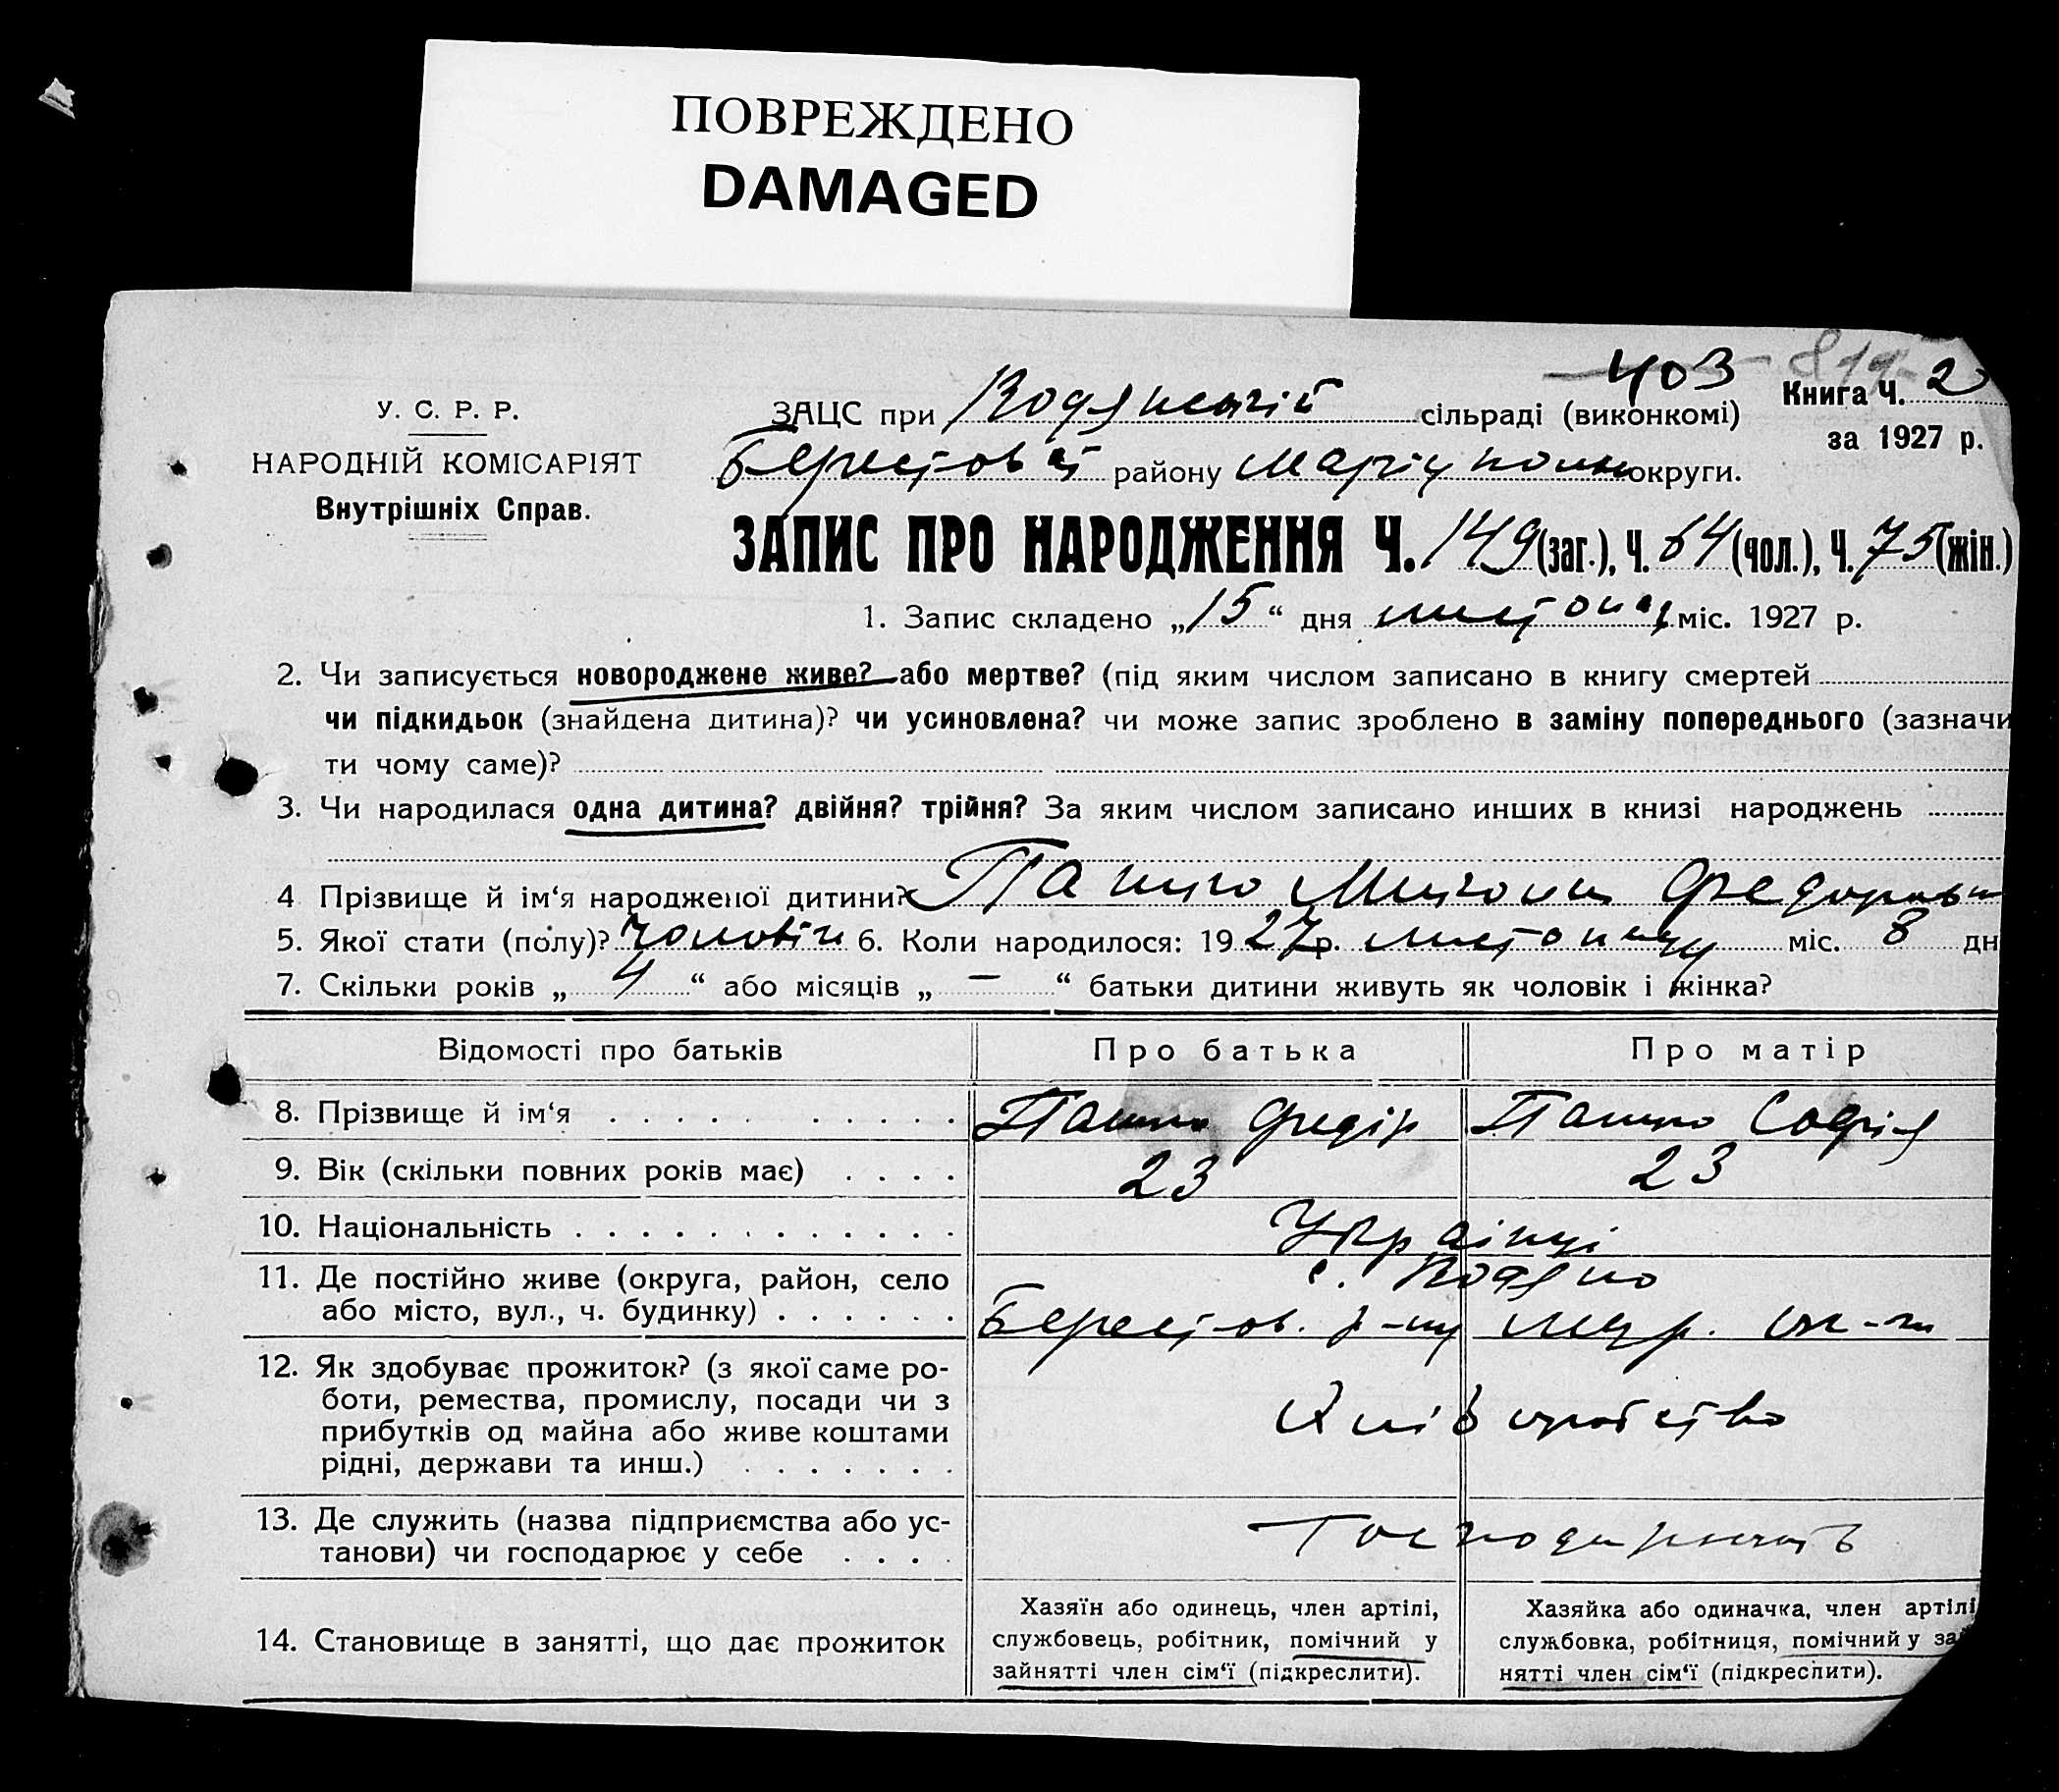 ПОВРЕЖДЕНО
DAMAGED
403
У. С. Р. Р.
НАРОДНІЙ КОМІСАРІЯТ
Внутрішніх Справ.
Книга Ч. 2
за 1927 р.
ЗАЦС при Водянській сільраді (виконкомі)
Берестов району Маріупольс округи.
ЗАПИС ПРО НАРОДЖЕННЯ Ч. 149 (заг.), Ч. (чол.), Ч. 75 (жін.)
1. Запис складено „15“ дня листопад міс. 1927 р.
2. Чи записується новороджене живе? або мертве? (під яким числом записано в книгу смертей
чи підкидьок (знайдена дитина)? чи усиновлена? чи може запис зроблено в заміну попереднього (зазначи
ти чому саме)?
3. Чи народилася одна дитина? двійня? трійня? За яким числом записано инших в книзі народжень
4 Прізвище й ім‘я народженої дитини?
5. Якої стати (полу)? чоловіч 6. Коли народилося: 1927 р. листопаду міс. 8 дн
7. Скільки років „ 4 “ або місяців „ — “ батьки дитини живуть як чоловік і жінка?
Відомості про батьків Про батька Про матір
8. Прізвище й ім‘я Федір Софія
9. Вік (скільки повних років має) 23 23
10. Національність Українці
11. Де постійно живе (округа, район, село с. Водяно
або місто, вул., ч. будинку) Берестов. р-ну Мар. ок-ги
12. Як здобуває прожиток? (з якої саме ро-
боти, ремества, промислу, посади чи з
прибутків од майна або живе коштами
рідні, держави та инш.) Хліборобство
13. Де служить (назва підприємства або ус-
танови) чи господарює у себе
14. Становище в занятті, що дає прожиток
Хазяїн або одинець, член артілі,
службовець, робітник, помічний у
зайнятті член сім‘ї (підкреслити).
Хазяйка або одиначка, член артілі
службовка, робітниця, помічний у зай
нятті член сім‘ї (підкреслити).